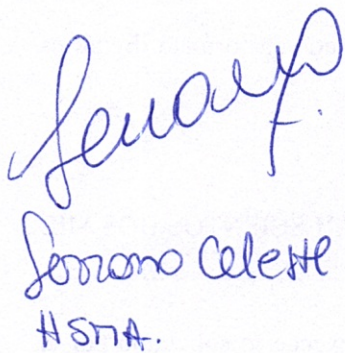 Serrano
Serrano Celeste
HSMA.